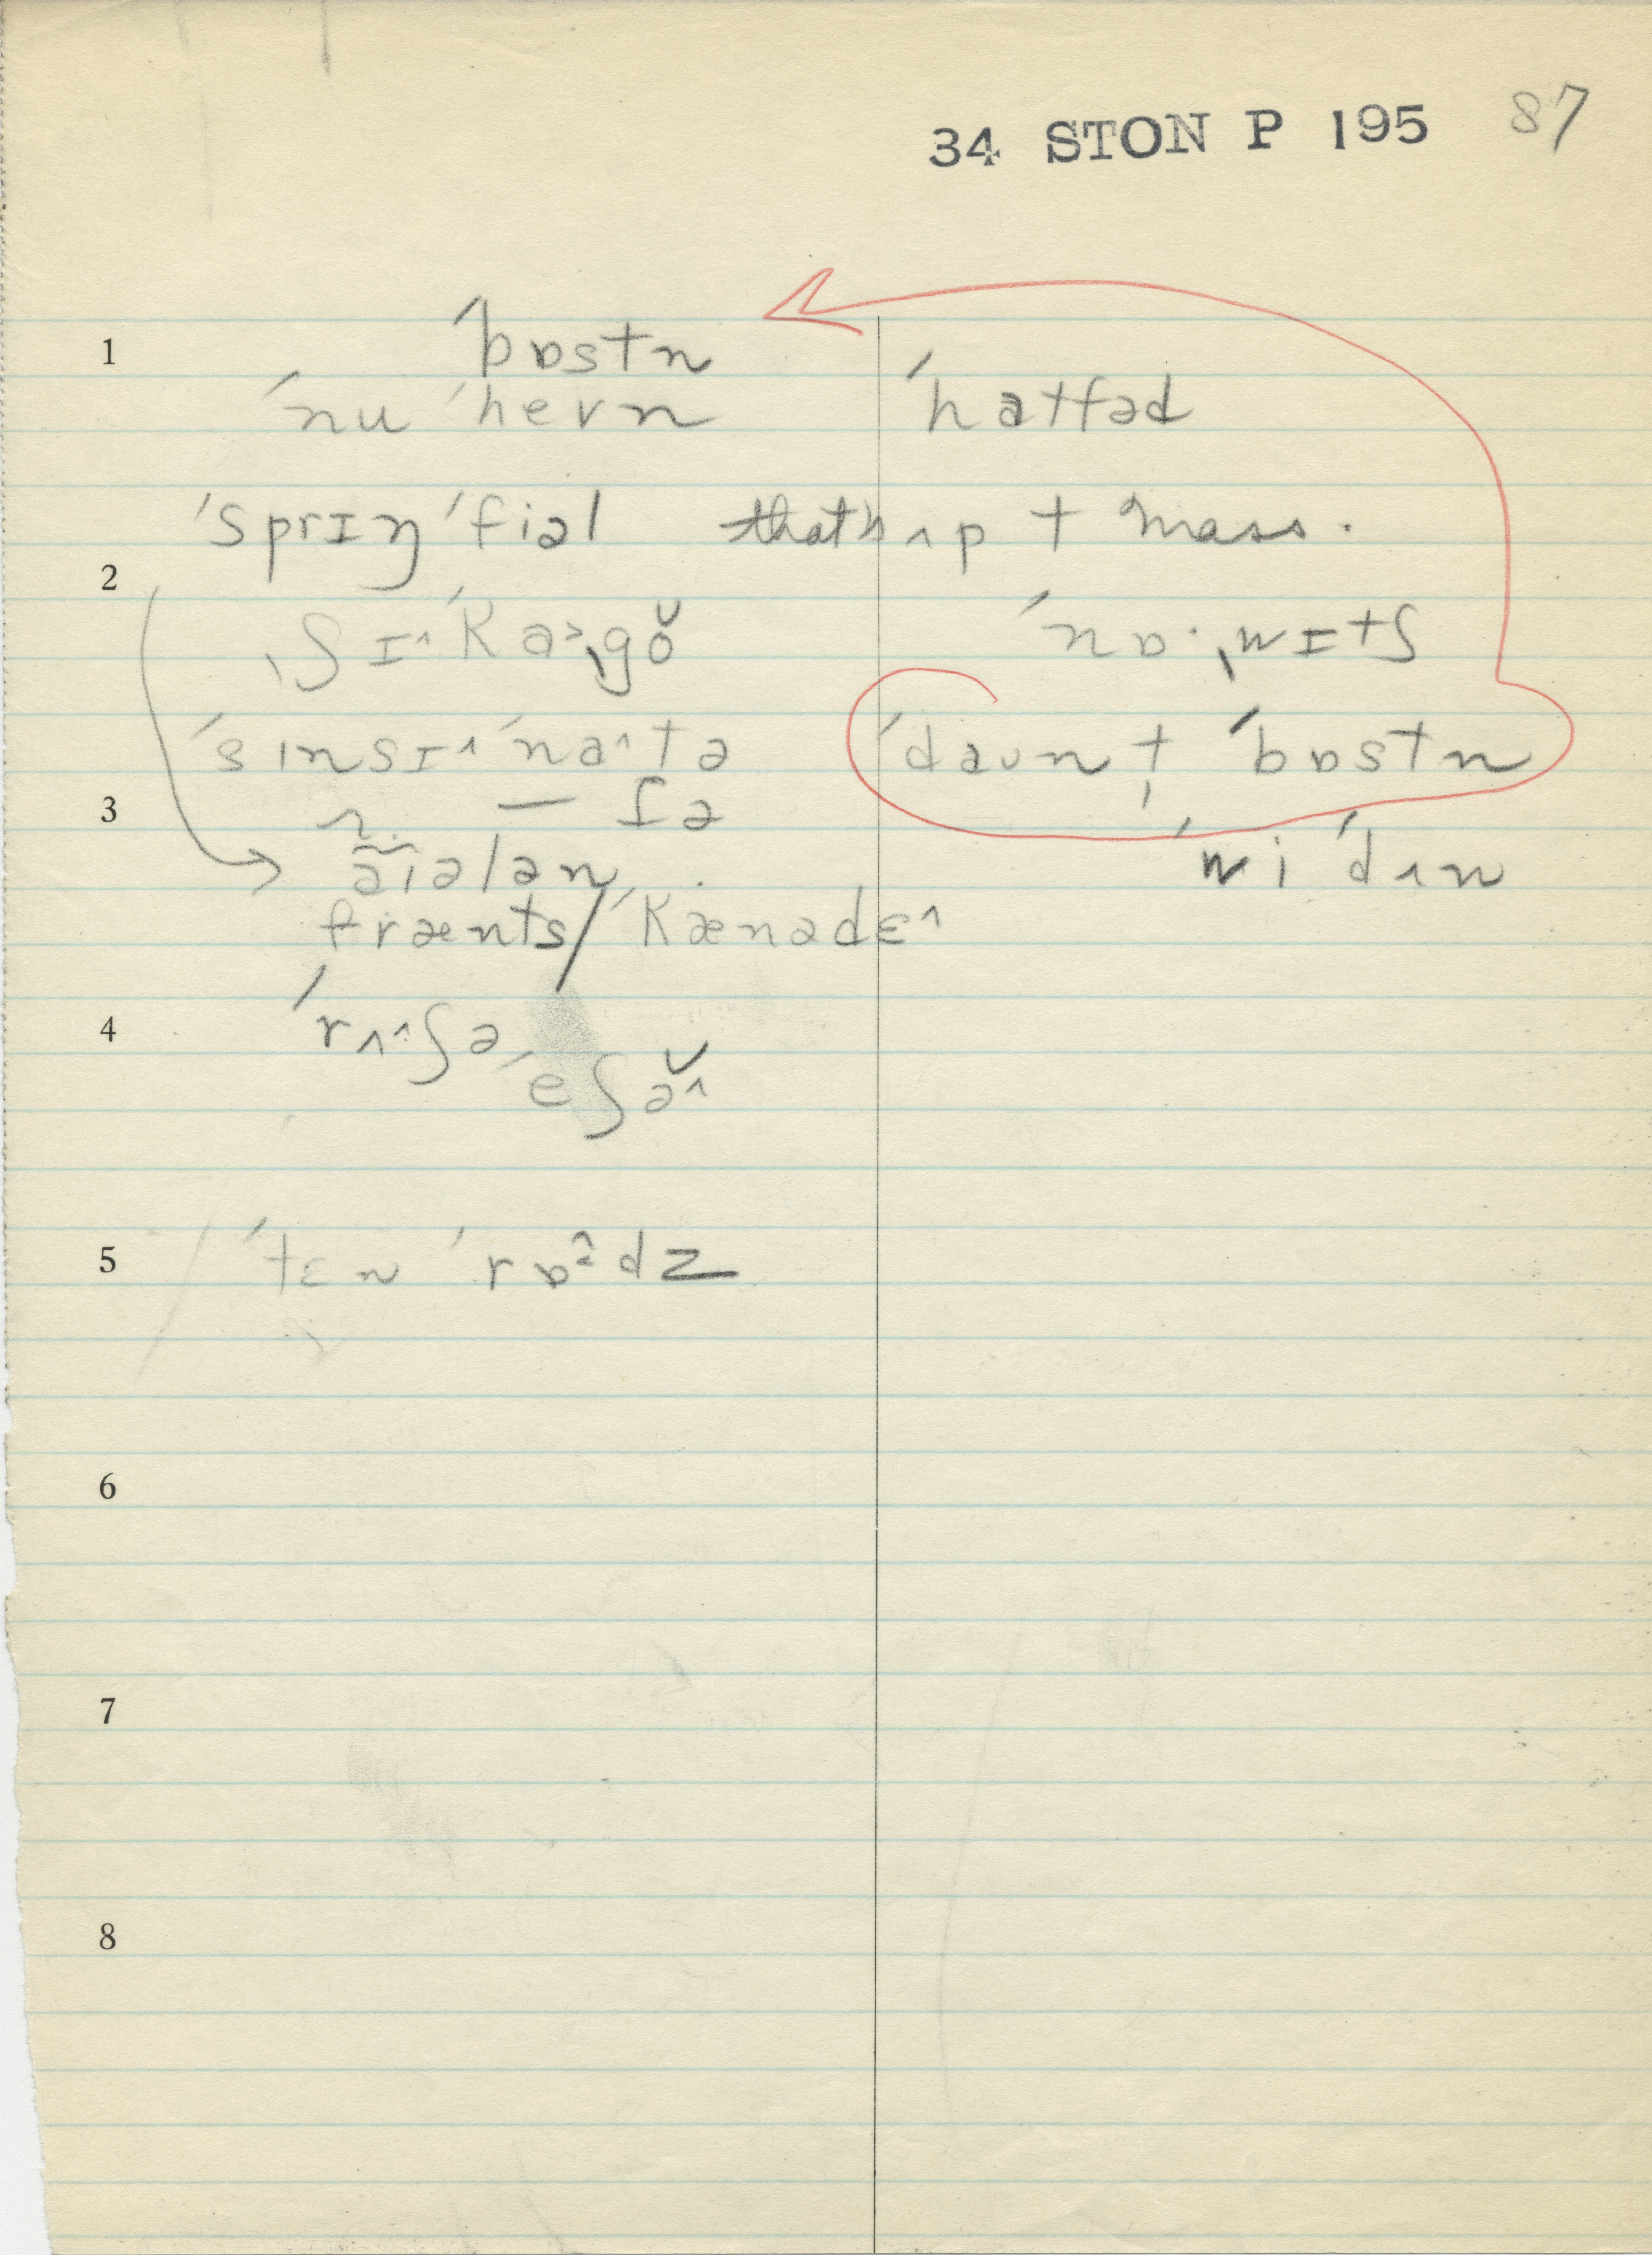 34 STON P 195 87
1 ˈbɒstn
ˈnu ˈhevn ˈhatfəd
ˈsprɪŋ ˈfiəl that's ʌp t mass.
2
ˌʃɪ^ ˈka˃ˌgŏ ˈnɒ·ˌwɪtʃ
ˈsɪnsɪ^ ˈna^tə ˈdaʊn t ˈbɒstn
3 n. — ɪə
aɪələn ˈwi ˈdʌn
frænts / ˈkænadɛ^
4 ˈrʌ^ʃə
ˈeʃə̆^
5 ˈtɛn ˈrɒdz
6
7
8